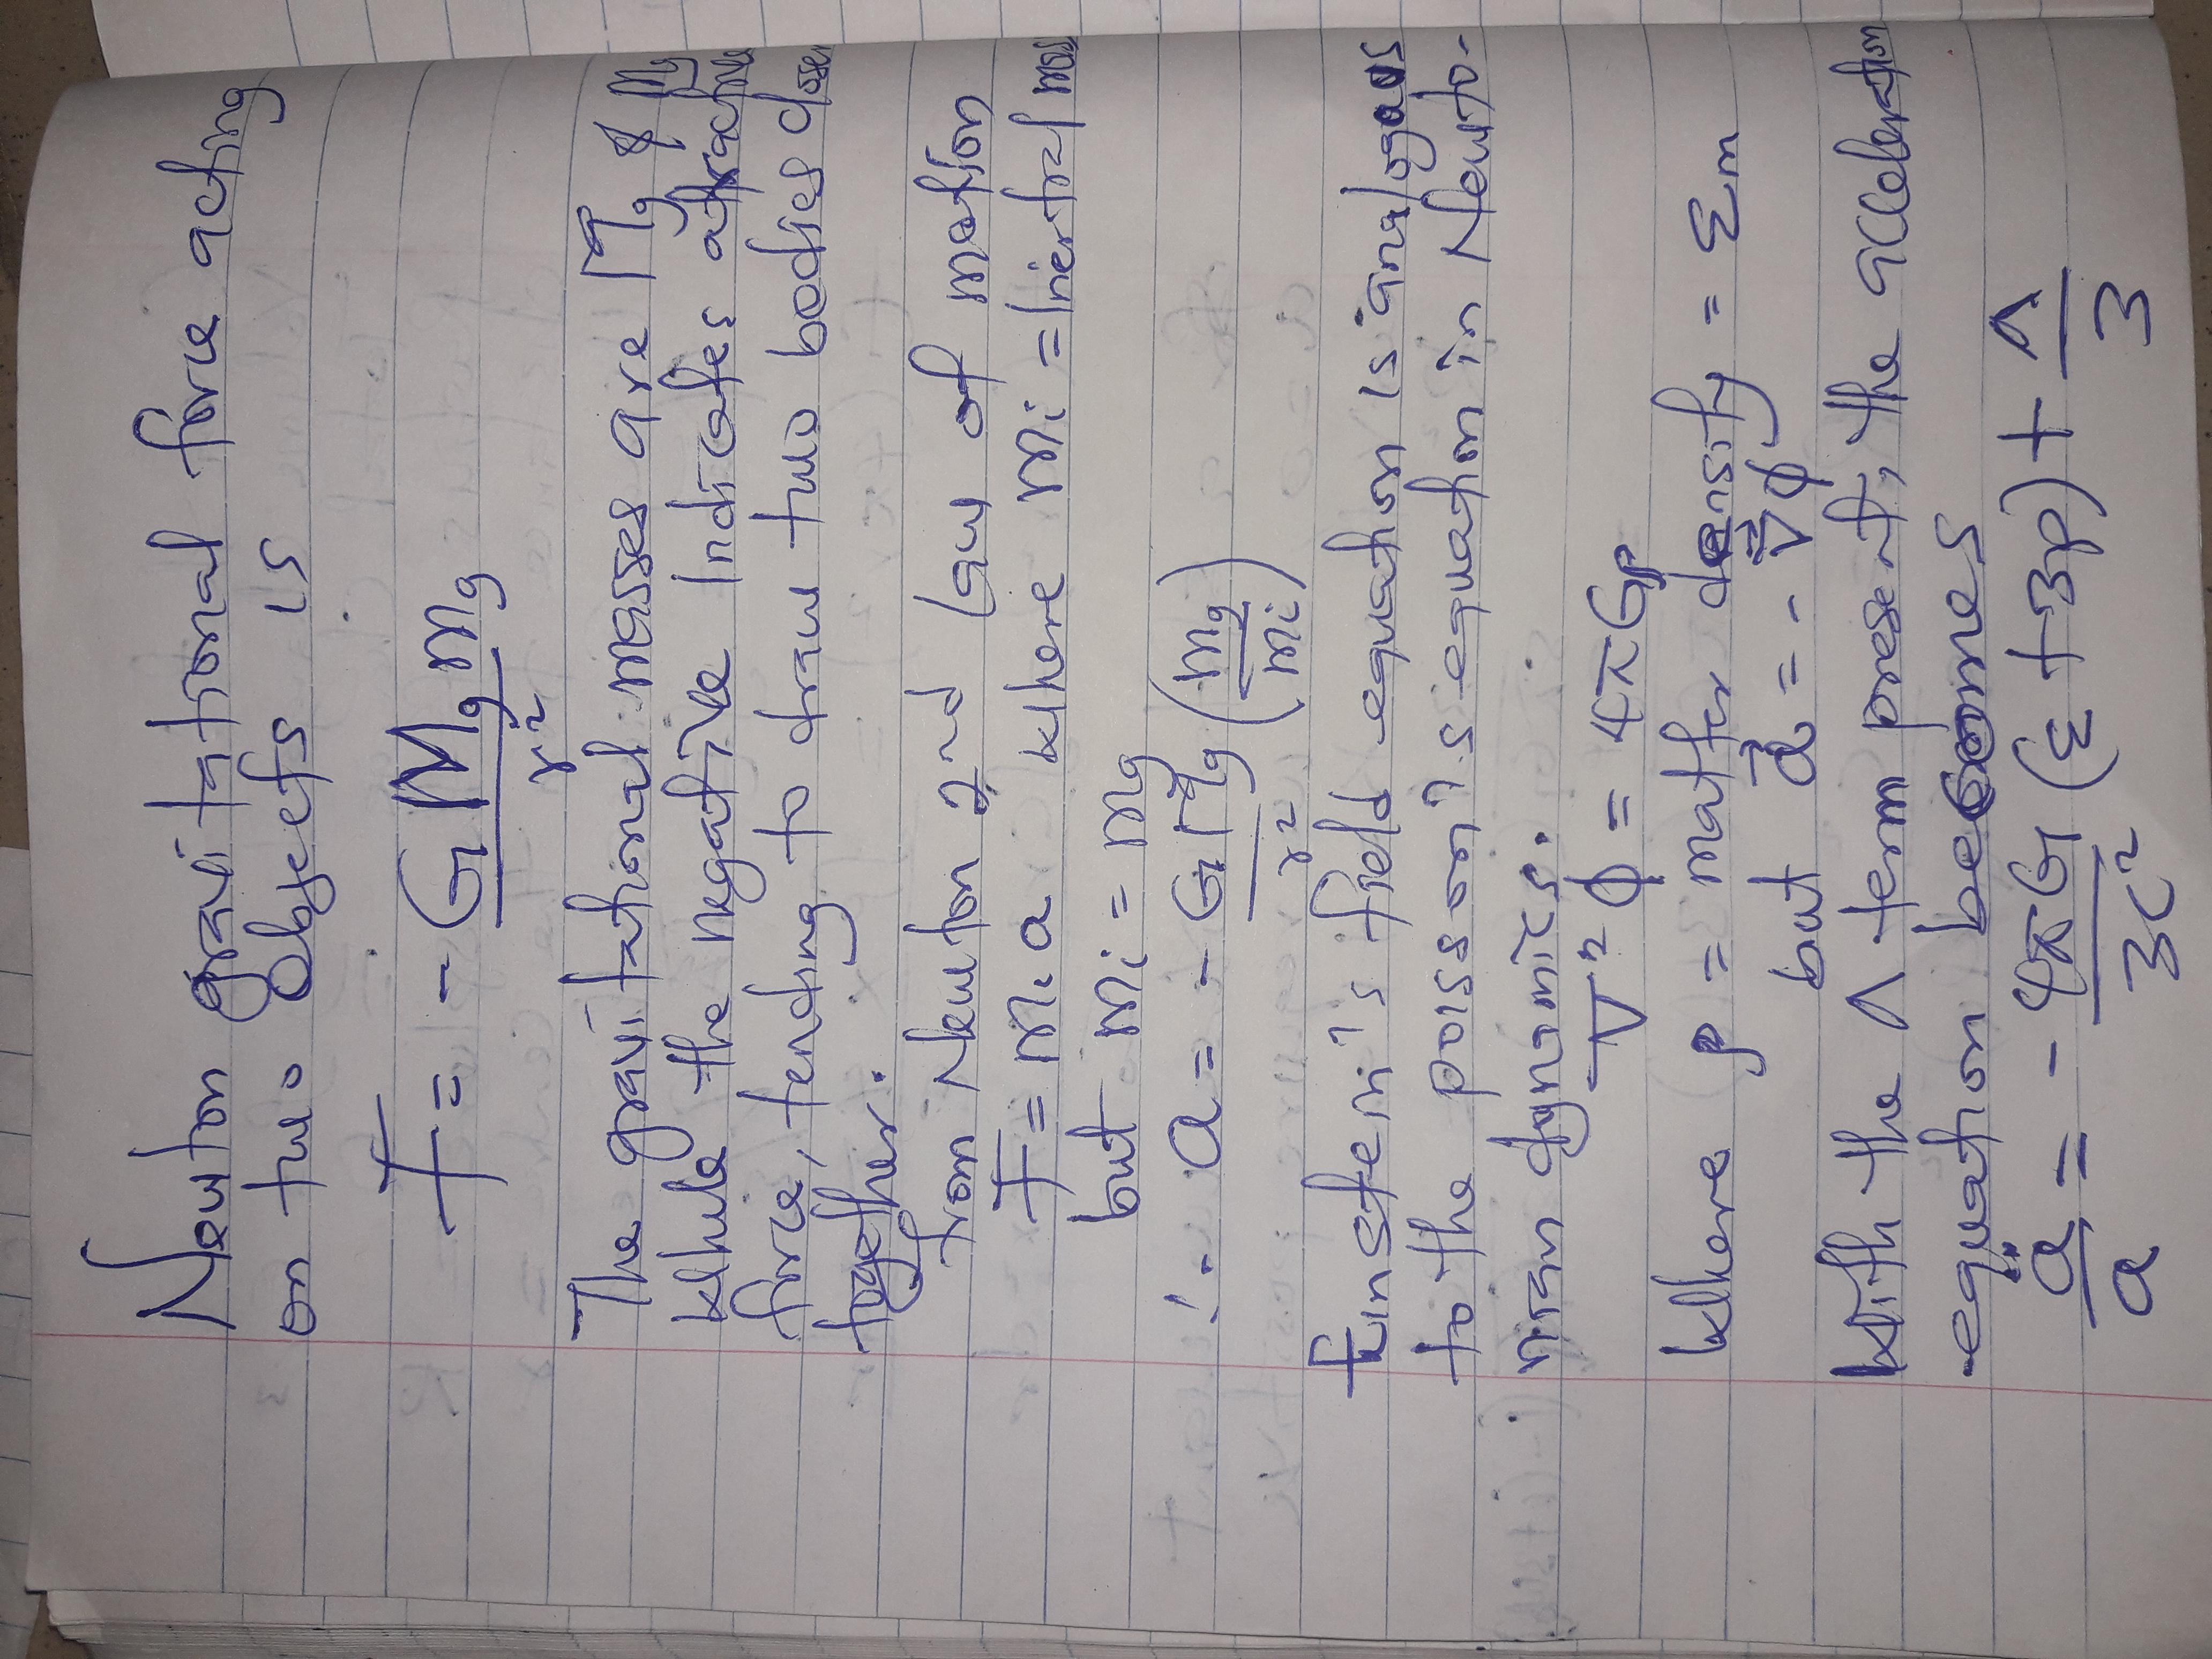 Newton gravitational force acting
on two objects is
F = - G Mg mg / r²
The gravitational masses are Mg & mg
while the negative indicates attractive
force, tending to draw two bodies closer
together.
from Newton 2nd law of motion
F = mi a where mi = Inertial mass
but mi = mg
∴ a = - G Mg / r² (mg / mi)
Einstein's field equation is analogous
to the poisson's equation in Newto-
nian dynamics.
∇² φ = 4πGρ
where ρ = matter density = εm
but a⃗ = - ∇⃗φ
With the Λ term present, the acceleration
equation becomes
ä / a = - 4πG / 3c² (ε + 3p) + Λ / 3